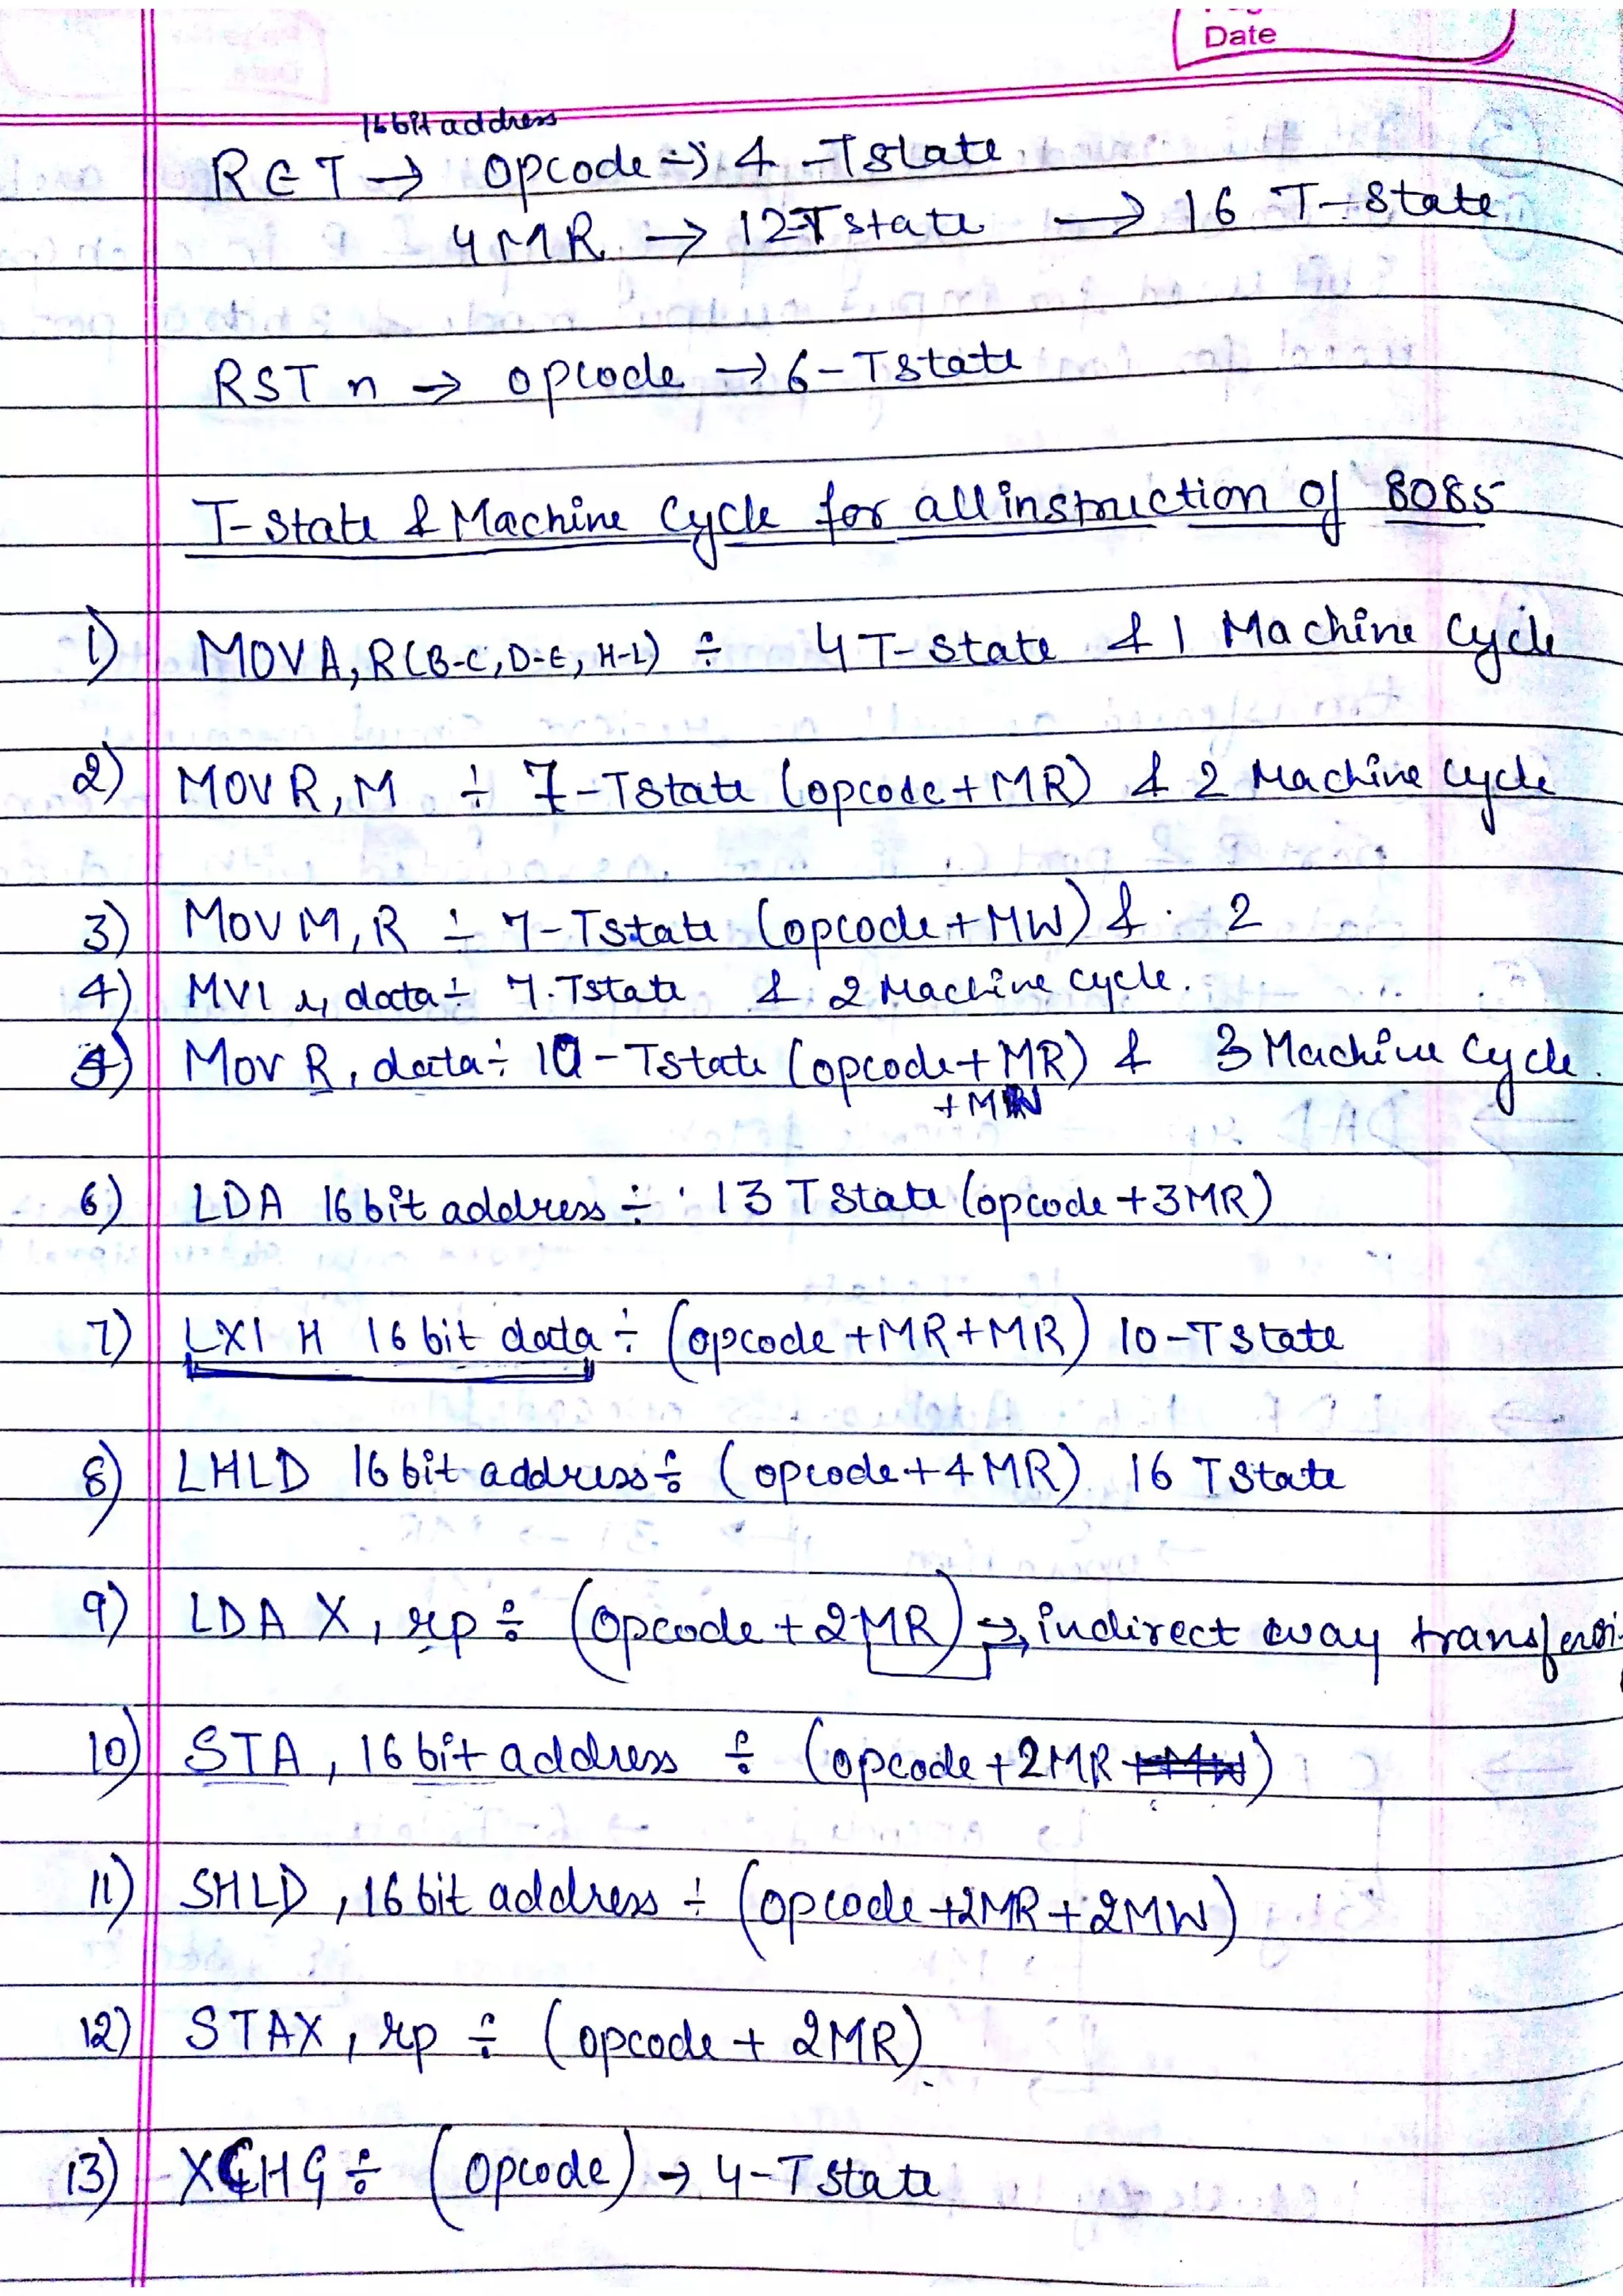 Date
16 bit address
RET → opcode → 4 -Tstate
4MR → 12Tstate → 16 T-state
RST n → opcode → 6-Tstate
T-state & Machine Cycle for all instruction of 8085
1) MOVA, R(B-C, D-E, H-L) ÷ 4 T-state & 1 Machine Cycle
2) MOV R, M ÷ 7-Tstate (opcode + MR) & 2 Machine Cycle
3) MOV M, R ÷ 7-Tstate (opcode + MW) & 2
4) MVI r, data ÷ 7.Tstate & 2 Machine Cycle.
5) MOV R, data ÷ 10-Tstate (opcode + MR) & 3 Machine Cycle.
6) LDA 16 bit address ÷ 13 T state (opcode + 3MR)
7) LXI H 16 bit data ÷ (opcode + MR + MR) 10-Tstate
8) LHLD 16 bit address ÷ (opcode + 4MR) 16 Tstate
9) LDA X, rp ÷ (opcode + 2MR) → indirect way
10) STA, 16 bit address ÷ (opcode + 2MR +MW)
11) SHLD, 16 bit address ÷ (opcode +2MR + 2MW)
12) STAX, rp ÷ (opcode + 2MR)
13) XCHG ÷ (opcode) → 4-Tstate